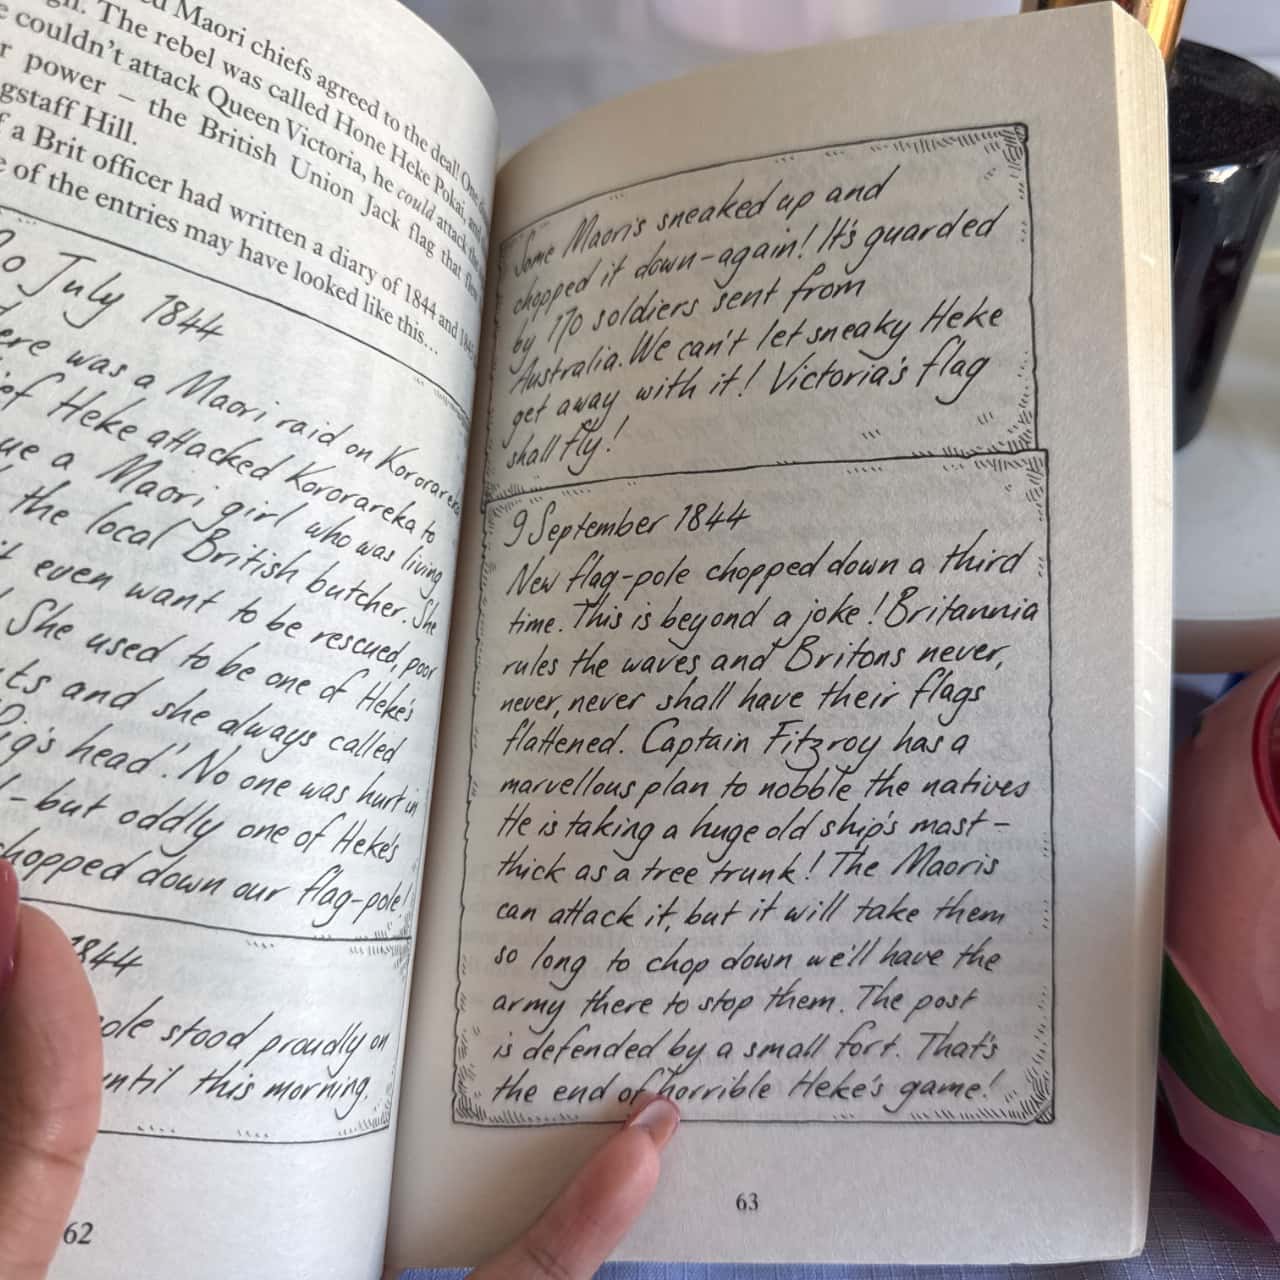 Maori chiefs agreed to the deal! One
The rebel was called Hone Heke Pokai, and
couldn't attack Queen Victoria, he could attack the
power – the British Union Jack flag that flew
Hill.
a Brit officer had written a diary of 1844 and
of the entries may have looked like this...
July 1844
was a Maori raid on Kororareka
Heke attacked Kororareka to
a Maori girl who was living
the local British butcher. She
even want to be rescued, poor
She used to be one of Heke's
and she always called
Pig's head'. No one was hurt in
- but oddly one of Heke's
chopped down our flag-pole!
1844
stood proudly on
until this morning.
62
Some Maoris sneaked up and
chopped it down-again! It's guarded
by 170 soldiers sent from
Australia. We can't let sneaky Heke
get away with it! Victoria's flag
shall fly!
9 September 1844
New flag-pole chopped down a third
time. This is beyond a joke! Britannia
rules the waves and Britons never,
never, never shall have their flags
flattened. Captain Fitzroy has a
marvellous plan to nobble the natives
He is taking a huge old ship's mast -
thick as a tree trunk! The Maoris
can attack it, but it will take them
so long to chop down we'll have the
army there to stop them. The post
is defended by a small fort. That's
the end of horrible Heke's game!
63